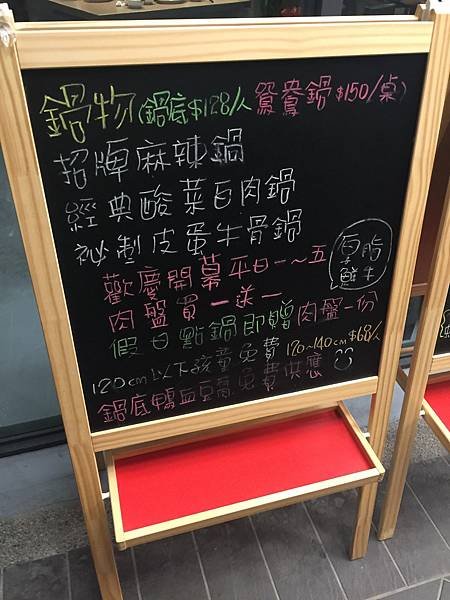 鍋物(鍋底$128/人 鴛鴦鍋$150/桌)
招牌麻辣鍋
經典酸菜白肉鍋
祕制皮蛋牛骨鍋
歡慶開幕平日一~五
肉盤買一送一
原脂鮮牛
假日點鍋即贈肉盤一份
120cm以下孩童免費 120~140cm$68/人
鍋底鴨血豆腐免費供應